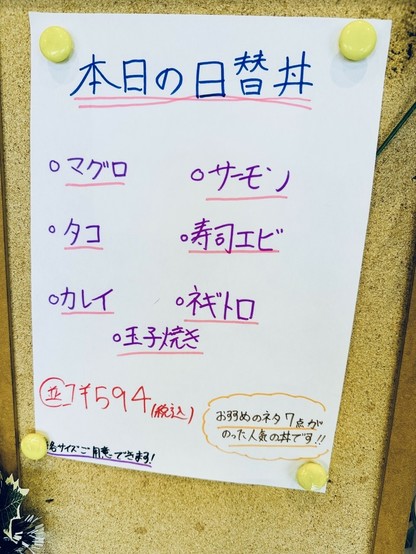 本日の日替丼
○マグロ ○サーモン
○タコ ○寿司エビ
○カレイ ○ネギトロ
○玉子焼き
並 ¥594(税込)
おすすめのネタ7点が
のった人気の丼です!!
各サイズご用意できます!